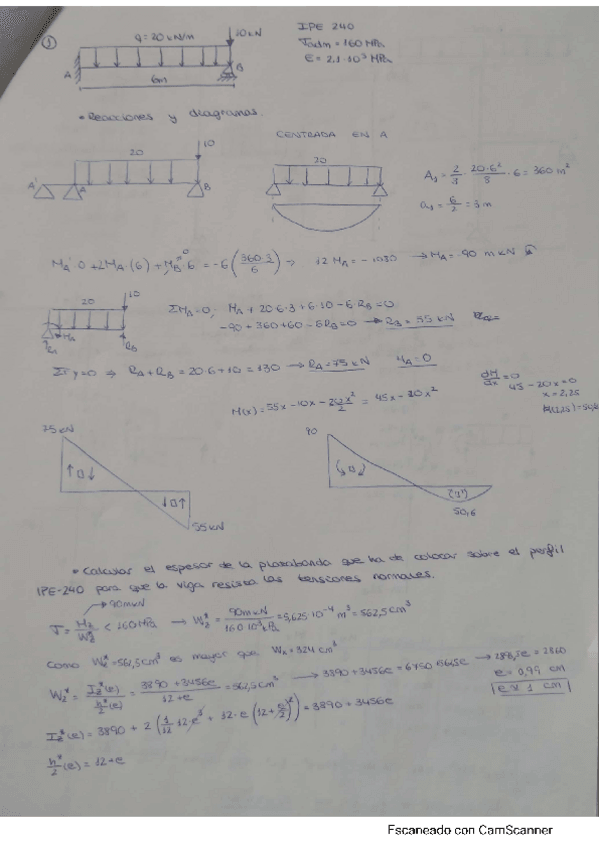 1
q = 20 kN/m
10 kN
A
B
6m
IPE 240
σadm = 160 MPa
E = 2,1·10⁵ MPa
• Reacciones y diagramas.
CENTRADA EN A
20
10
A' A B
20
A₁ = 2/3 · 20·6²/8 · 6 = 360 m²
a₁ = 6/2 = 3 m
M_A'·0 + 2M_A·(6) + M_B·6 = -6(360·3/6) → 12 M_A = -1080 → M_A = -90 m kN
20
10
R_A
M_A
R_B
ΣM_A=0; M_A + 20·6·3 + 6·10 - 6·R_B = 0
-90 + 360 + 60 - 6R_B = 0 → R_B = 55 kN
ΣFy=0 ⇒ R_A + R_B = 20·6 + 10 = 130 → R_A = 75 kN
H_A = 0
M(x) = 55x - 10x - 20x²/2 = 45x - 20x²
dM/dx = 0
45 - 20x = 0
x = 2,25
M(2,25) = 50,6
75 kN
55 kN
90
50,6
• Calcular el espesor de la platabanda que ha de colocar sobre el perfil
IPE-240 para que la viga resista las tensiones normales.
90 m kN
σ = M_z/W_z* < 160 MPa → W_z* = 90 m kN/160·10³ kPa = 5,625·10⁻⁴ m³ = 562,5 cm³
Como W_z* = 562,5 cm³ es mayor que W_x = 324 cm³
W_z* = I_z*(e)/(h*/2(e)) = (3890 + 3456e)/(12 + e) = 562,5 cm³ → 3890 + 3456e = 6750 + 562,5e → 2893,5e = 2860
e = 0,99 cm
e ≈ 1 cm
I_z*(e) = 3890 + 2(1/12 · 12·e³ + 12·e (12 + e/2)²) = 3890 + 3456e
h*/2 (e) = 12 + e
Escaneado con CamScanner